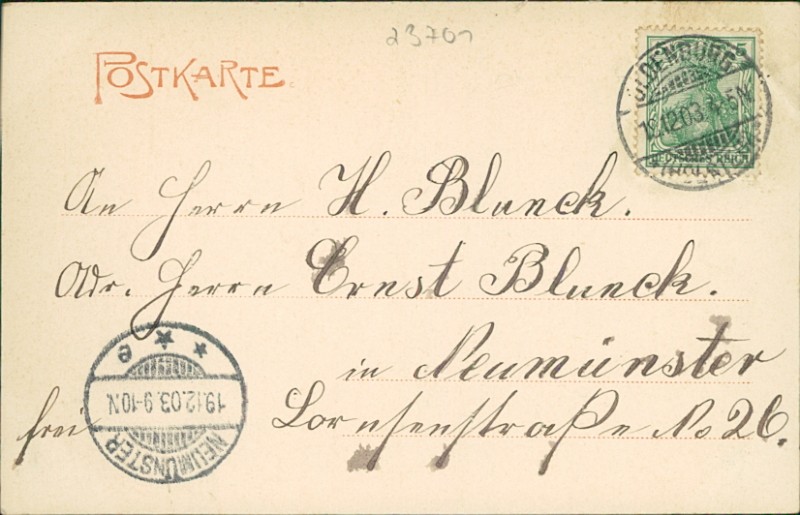 23701
POSTKARTE
OLDENBURG
12.03
5
DEUTSCHES REICH
An Herrn H. Blunck.
Adr. Herrn Ernst Blunck.
in Neumünster
frei
Lornsenstraße No 26.
NEUMÜNSTER
19.12.03.9-10N.
* * e